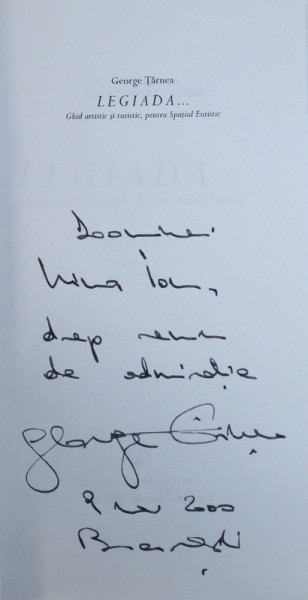 George Țărnea
LEGIADA...
Ghid artistic și turistic, pentru Spațiul Euristic
Doamnei
Nina Ion,
drep semn
de admirație
George Țărnea
9 2000
București